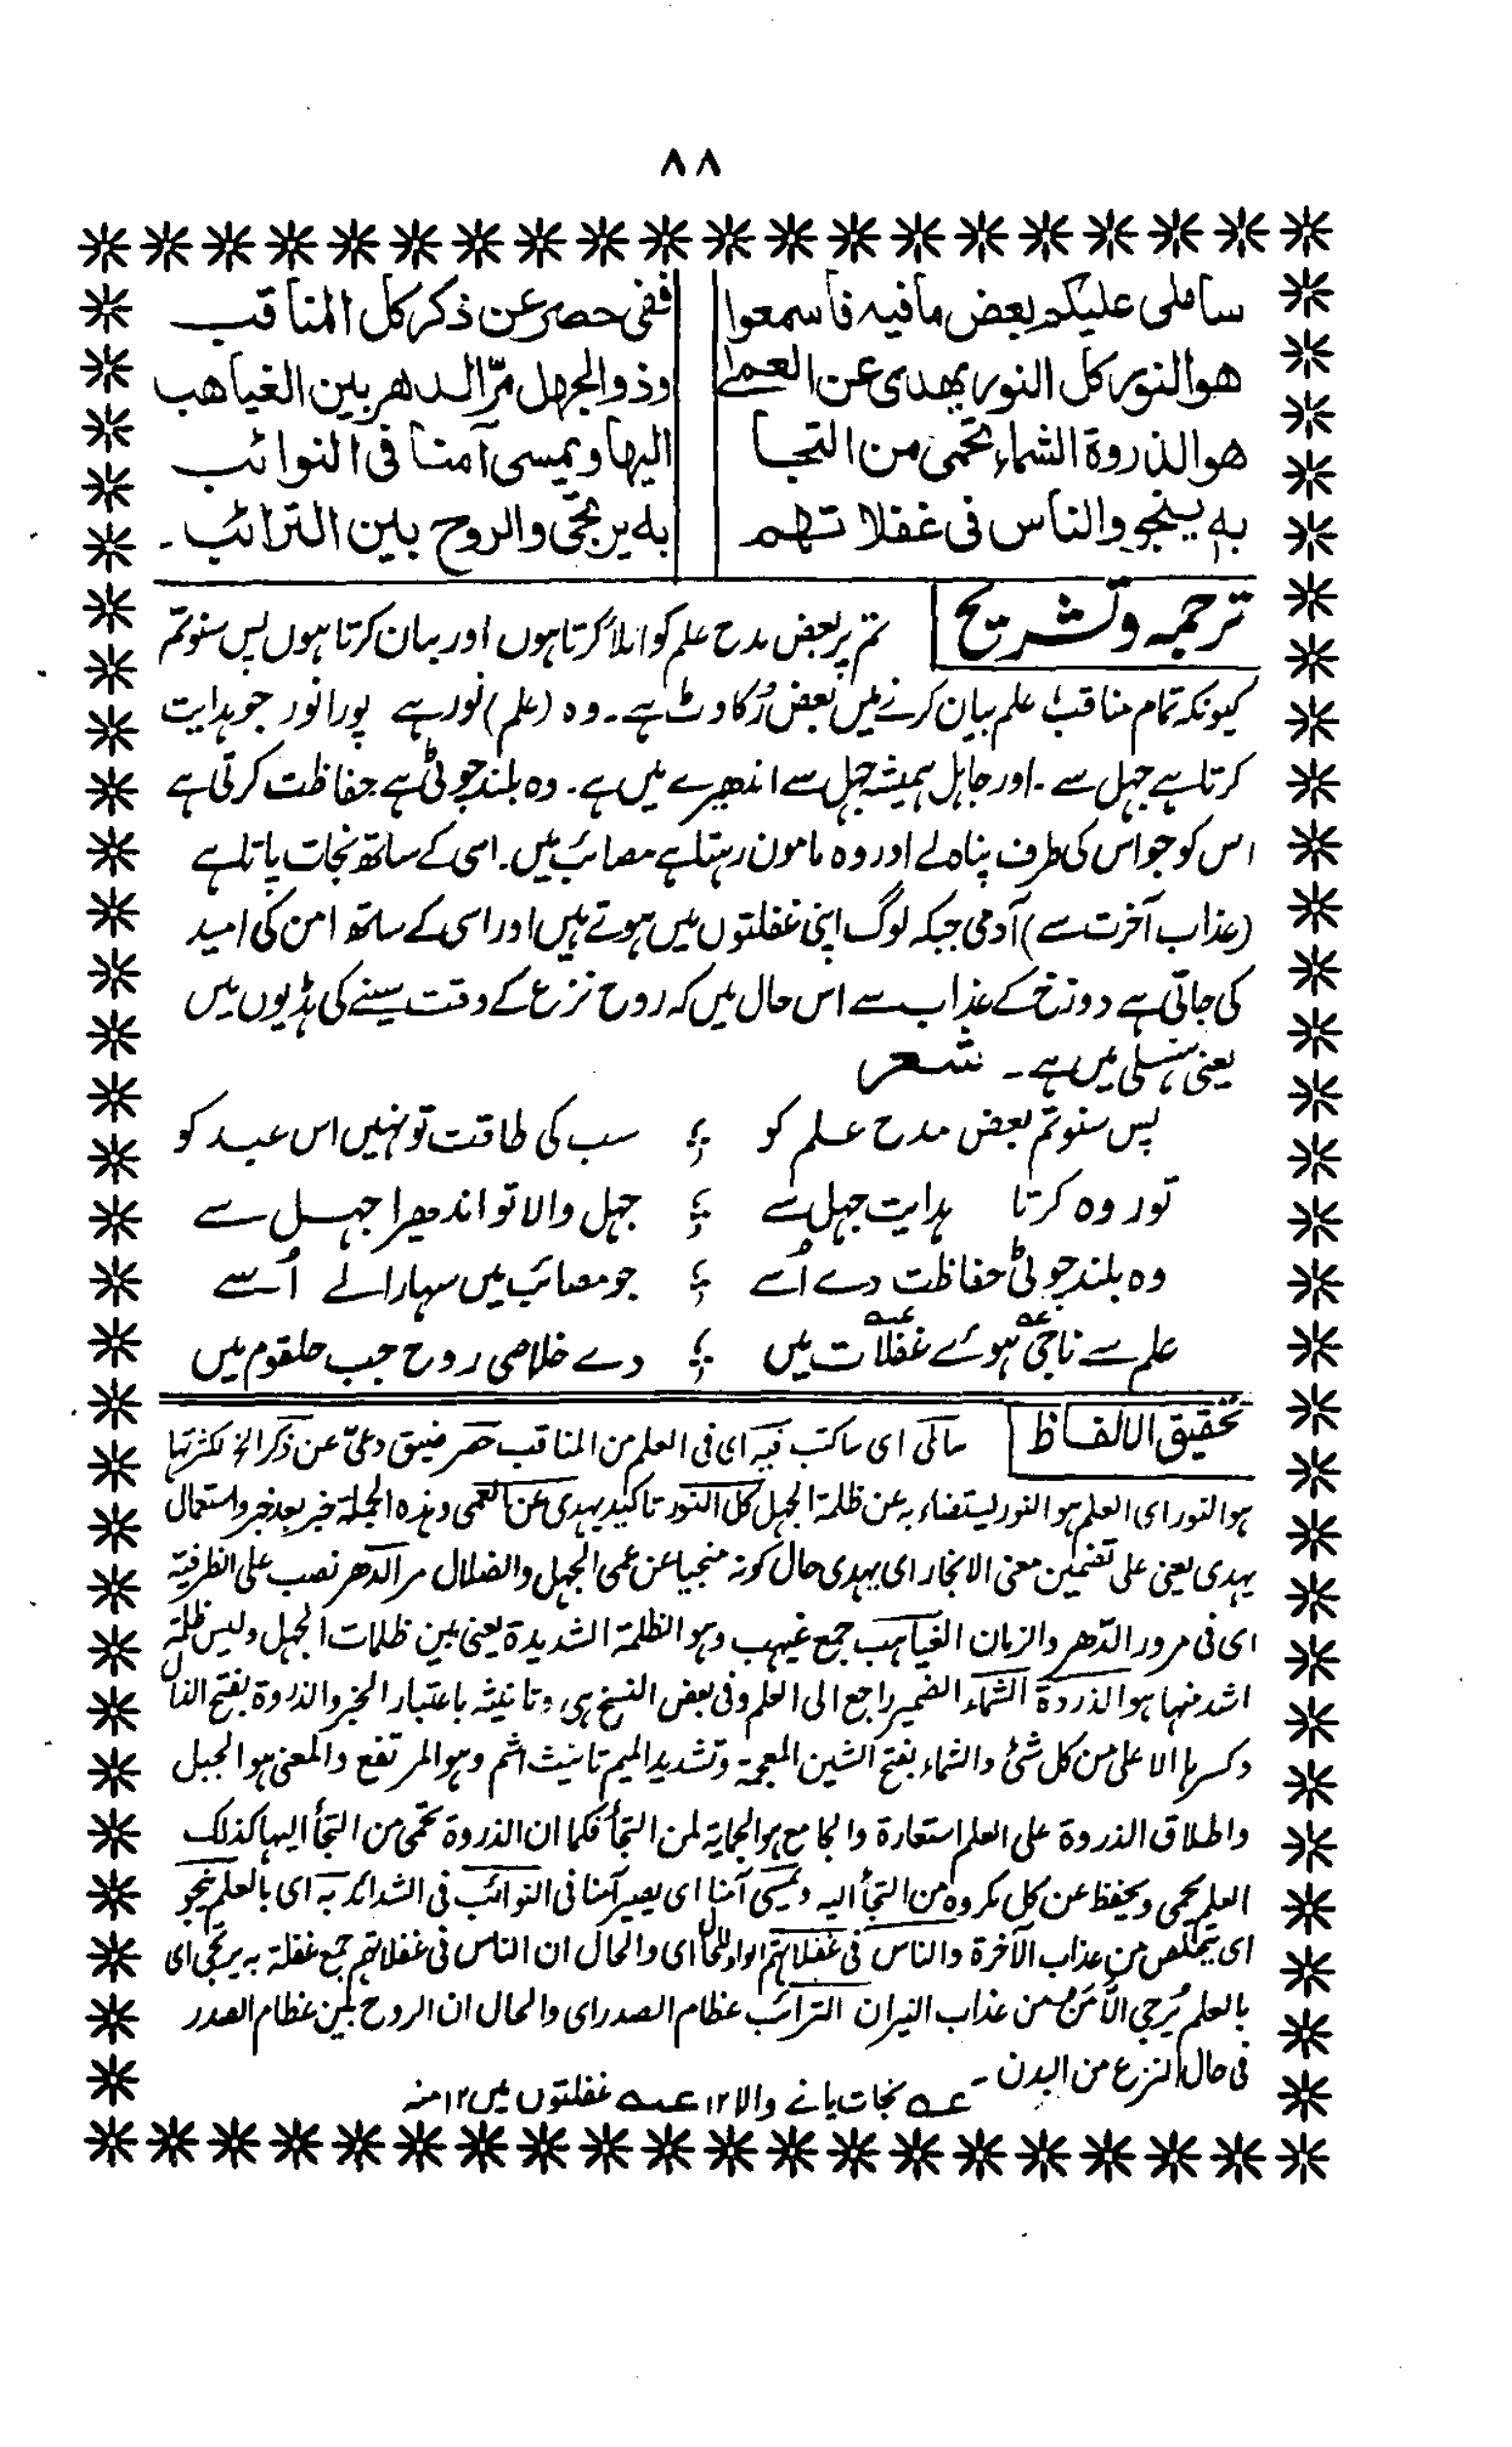 ٨٨
ساملی علیکم بعض مافیه فاسمعوا ففی حصر عن ذکر کل المناقب
هو النور کل النور یهدی عن العمی وذو الجهل مرّ الدهر بین الغیاهب
هو الذروة الشماء تحمی من التجا الیها ویمسی آمنا فی النوائب
به ینجو والناس فی غفلاتهم به یرتجی والروح بین الترائب۔
ترجمہ وتشریح تم پر بعض مدح علم کو املا کرتا ہوں اور بیان کرتا ہوں پس سنو تم
کیونکہ تمام مناقب علم بیان کرنے میں بعض رُکاوٹ ہے۔ وہ (علم) نور ہے پورا نور جو ہدایت
کرتا ہے جہل سے۔ اور جاہل ہمیشہ جہل سے اندھیرے میں ہے۔ وہ بلند چوٹی ہے حفاظت کرتی ہے
اس کو جو اس کی طرف پناہ لے اور وہ مامون رہتا ہے مصائب میں۔ اسی کے ساتھ نجات پاتا ہے
(عذاب آخرت سے) آدمی جبکہ لوگ اپنی غفلتوں میں ہوتے ہیں اور اسی کے ساتھ امن کی امید
کی جاتی ہے دوزخ کے عذاب سے اس حال میں کہ روح نزع کے وقت سینے کی ہڈیوں میں
یعنی ہنسلی میں ہے۔ شعر
پس سنو تم بعض مدح علم کو ؛ سب کی طاقت تو نہیں اس عبد کو
نور وہ کرتا ہدایت جہل سے ؛ جہل والا تو اندھیرا جہل سے
وہ بلند چوٹی حفاظت دے اُسے ؛ جو مصائب میں سہارا لے اُسے
علم سے ناجی عہ ہوئے غفلات عہ میں ؛ دے خلاصی روح جب حلقوم میں
تحقیق الالفاظ ساملی ای ساکتب فیہ ای فی العلم من المناقب حصر ضیق وعیّ عن ذکر الخ لکثرتہا
ہو النور ای العلم ہو النور لیستضاء بہ عن ظلمۃ الجہل کل النور تاکید یہدی عن العمی وہذہ الجملۃ خبر بعد خبر واستعمال
یہدی بعن علی تضمین معنی الانجاء ای یہدی حال کونہ منجیا عن عمی الجہل والضلال مر الدھر نصب علی الظرفیۃ
ای فی مرور الدّھر والزمان الغیاہب جمع غیہب وہو الظلمۃ الشدیدۃ یعنی بین ظلمات الجہل ولیس ظلمۃ
اشد منہا ہو الذروۃ الشماء الضمیر راجع الی العلم وفی بعض النسخ ہی وتانیثہ باعتبار الخبر والذروۃ بفتح الذال
وکسرہا الاعلی من کل شئ والشماء بفتح الشین المعجمۃ وتشدید المیم تانیث اشم وہو المرتفع والمعنی ہو الجبل
واطلاق الذروۃ علی العلم استعارۃ والجامع ہو الحمایۃ لمن التجأ فکما ان الذروۃ تحمی من التجأ الیہا کذلک
العلم یحمی ویحفظ عن کل مکروہ من التجأ الیہ ویمسی آمنا ای یصیر آمنا فی النوائب فی الشدائد بہ ای بالعلم ینجو
ای یتخلص من عذاب الآخرۃ والناس فی غفلاتہم الواو للحال ای والحال ان الناس فی غفلاتہم جمع غفلۃ بہ یرتجی ای
بالعلم یُرجی الأمن من عذاب النیران الترائب عظام الصدر ای والحال ان الروح بین عظام الصدر
فی حال النزع من البدن۔
عہ نجات پانے والا ۱۲ عہ غفلتوں میں ۱۲ منہ